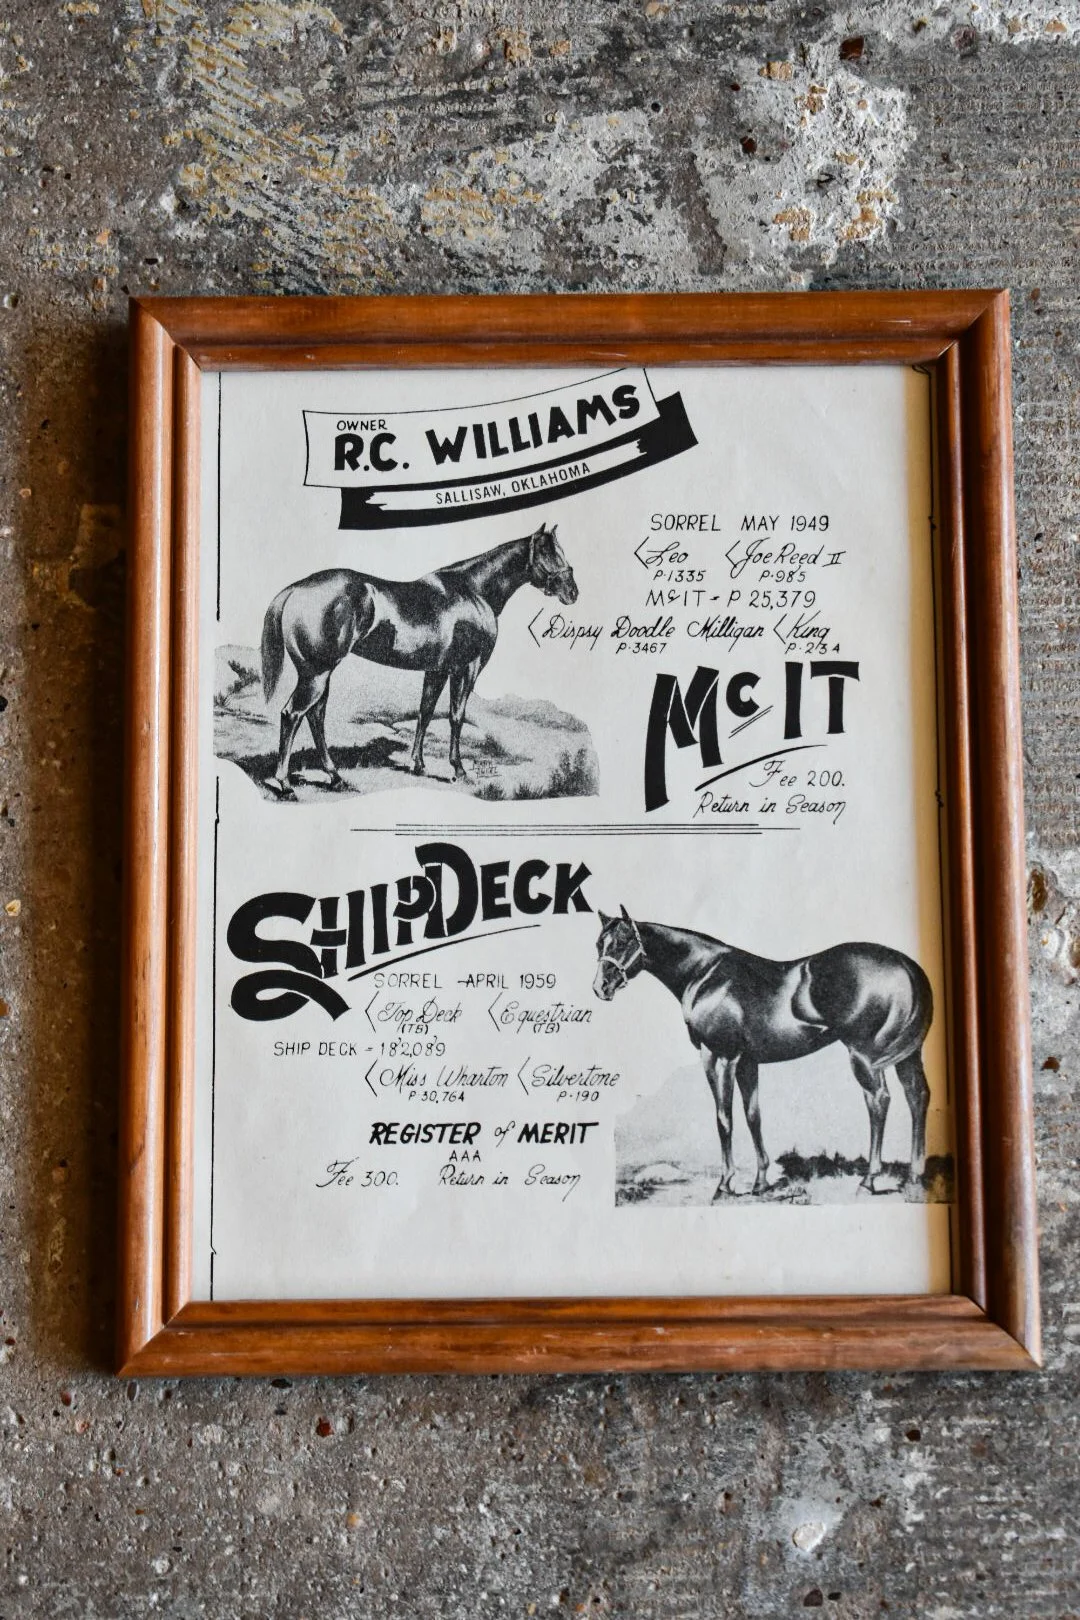 OWNER
R.C. WILLIAMS
SALLISAW, OKLAHOMA
SORREL MAY 1949
Leo Joe Reed II
P-1335 P-985
McIT - P 25,379
Dispsy Doodle Milligan King
P-3467 P-234
McIT
Fee 200.
Return in Season
SHIP DECK
SORREL - APRIL 1959
Top Deck Equestrian
(TB) (TB)
SHIP DECK - 182,089
Miss Wharton Silvertone
P-30,764 P-190
REGISTER of MERIT
AAA
Fee 300. Return in Season